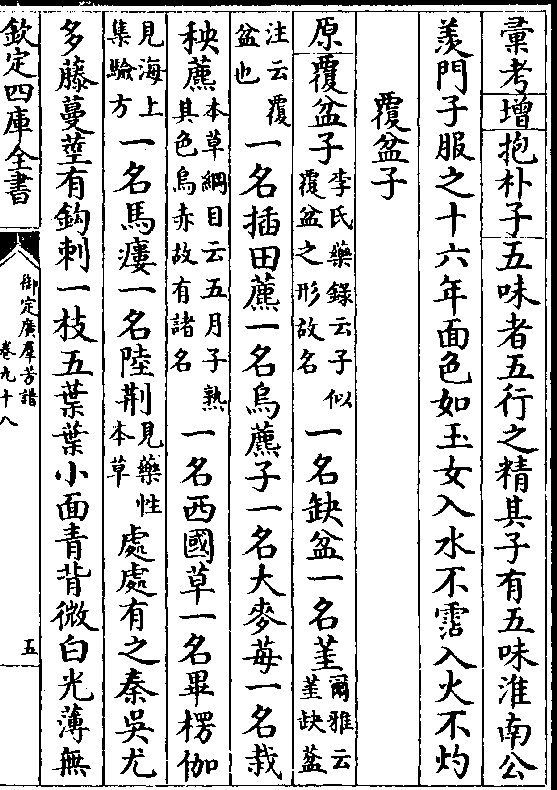 彚考增抱朴子五味者五行之精其子有五味淮南公
羡門子服之十六年面色如玉女入水不霑入火不灼
覆盆子
原覆盆子李氏藥錄云子似覆盆之形故名一名缺盆一名堇爾雅云堇缺盆
注云覆盆也一名插田藨一名烏藨子一名大麥莓一名栽
秧藨本草綱目云五月子熟其色烏赤故有諸名一名西國草一名畢楞伽
見海上集驗方一名馬瘻一名陸荆見藥性本草處處有之秦吳尤
多藤蔓莖有鈎刺一枝五葉葉小面青背微白光薄無
欽定四庫全書
御定廣羣芳譜
卷九十八
五